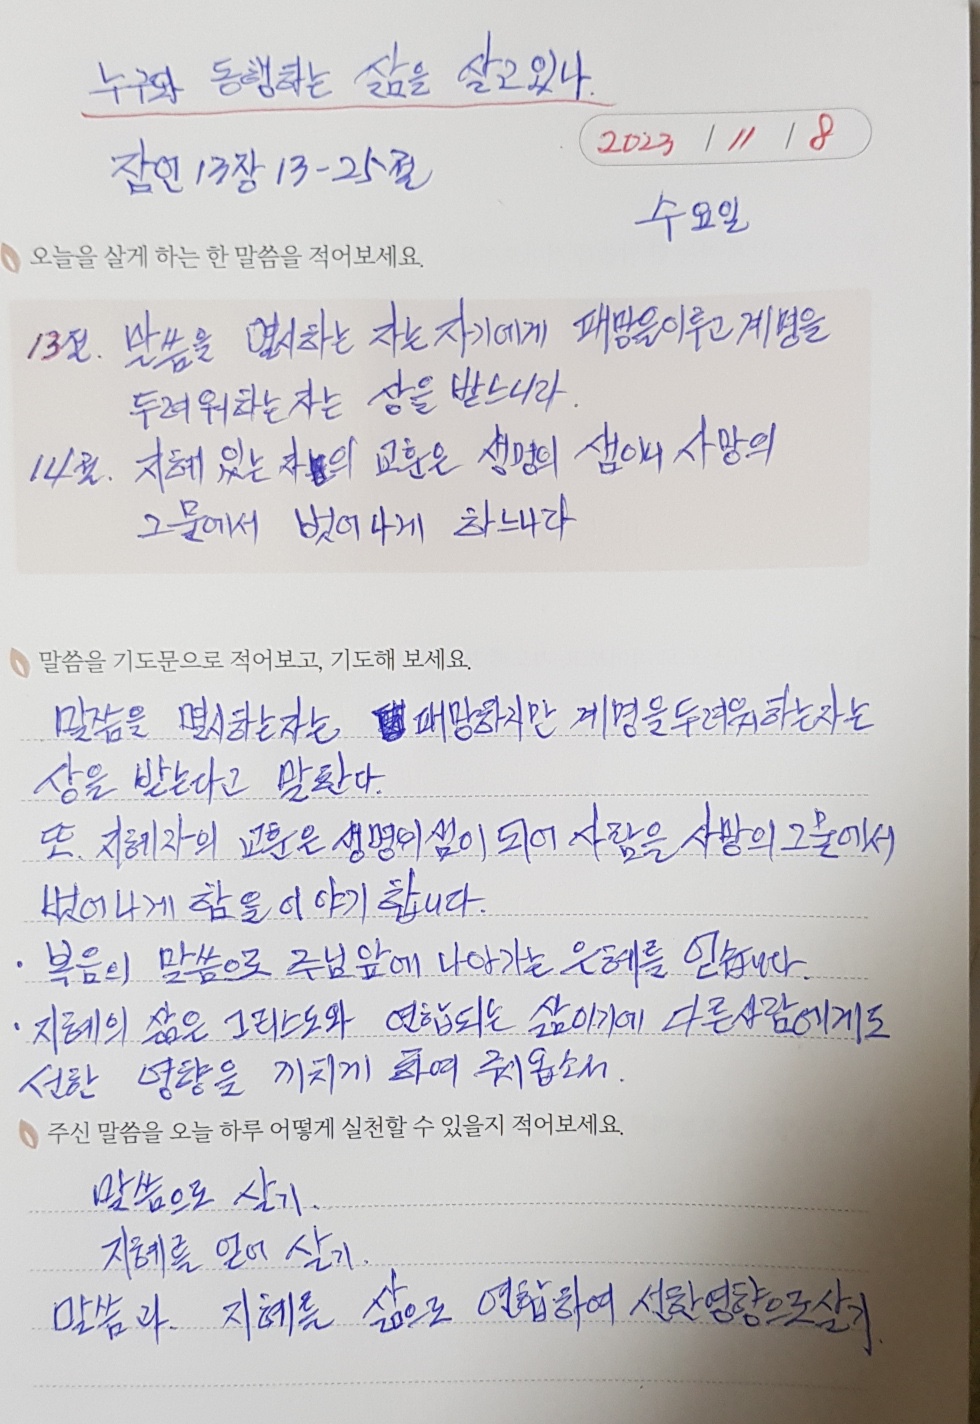 누구와 동행하는 삶을 살고있나.
2023 / 11 / 8
잠언 13장 13-25절
수요일
오늘을 살게 하는 한 말씀을 적어보세요.
13절. 말씀을 멸시하는 자는 자기에게 패망을이루고 계명을
두려워하는자는 상을 받느니라.
14절. 지혜 있는 자의 교훈은 생명의 샘이니 사망의
그물에서 벗어나게 하느니라
말씀을 기도문으로 적어보고, 기도해 보세요.
말씀을 멸시하는자는, 패망하지만 계명을두려워하는자는
상을 받는다고 말한다.
또. 지혜자의 교훈은 생명의샘이 되어 사람을 사망의 그물에서
벗어나게 함을 이야기 합니다.
· 복음의 말씀으로 주님앞에 나아가는 은혜를 얻습니다.
· 지혜의 삶은 그리스도와 연합되는 삶이기에 다른사람에게도
선한 영향을 끼치게 하여 주시옵소서.
주신 말씀을 오늘 하루 어떻게 실천할 수 있을지 적어보세요.
말씀으로 살기.
지혜를 얻어 살기.
말씀과. 지혜를 삶으로 연합하여 선한영향으로살기.